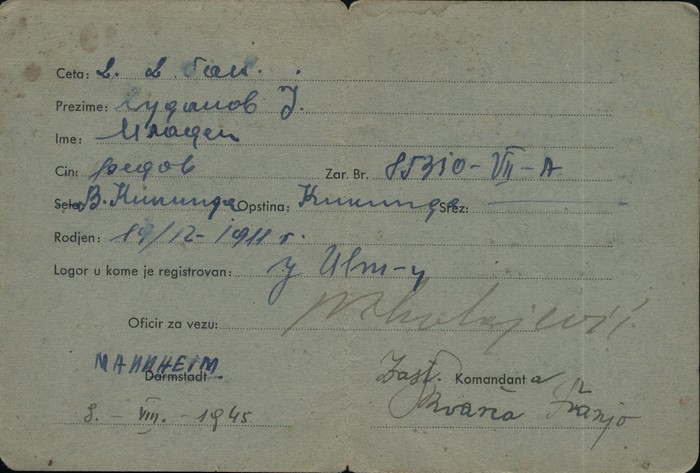 Ceta: 2. 2 бат.
Prezime: Худанов J.
Ime: Младен
Cin: редов Zar. Br. 85310-VII-A
Selo: В. Кикинда Opstina: Кикинда Srez: —
Rodjen: 19/12-1911 г.
Logor u kome je registrovan: у Ulm-у
Oficir za vezu:
MANNHEIM
Darmstadt Zast. Komandant a
8. - VIII. - 1945